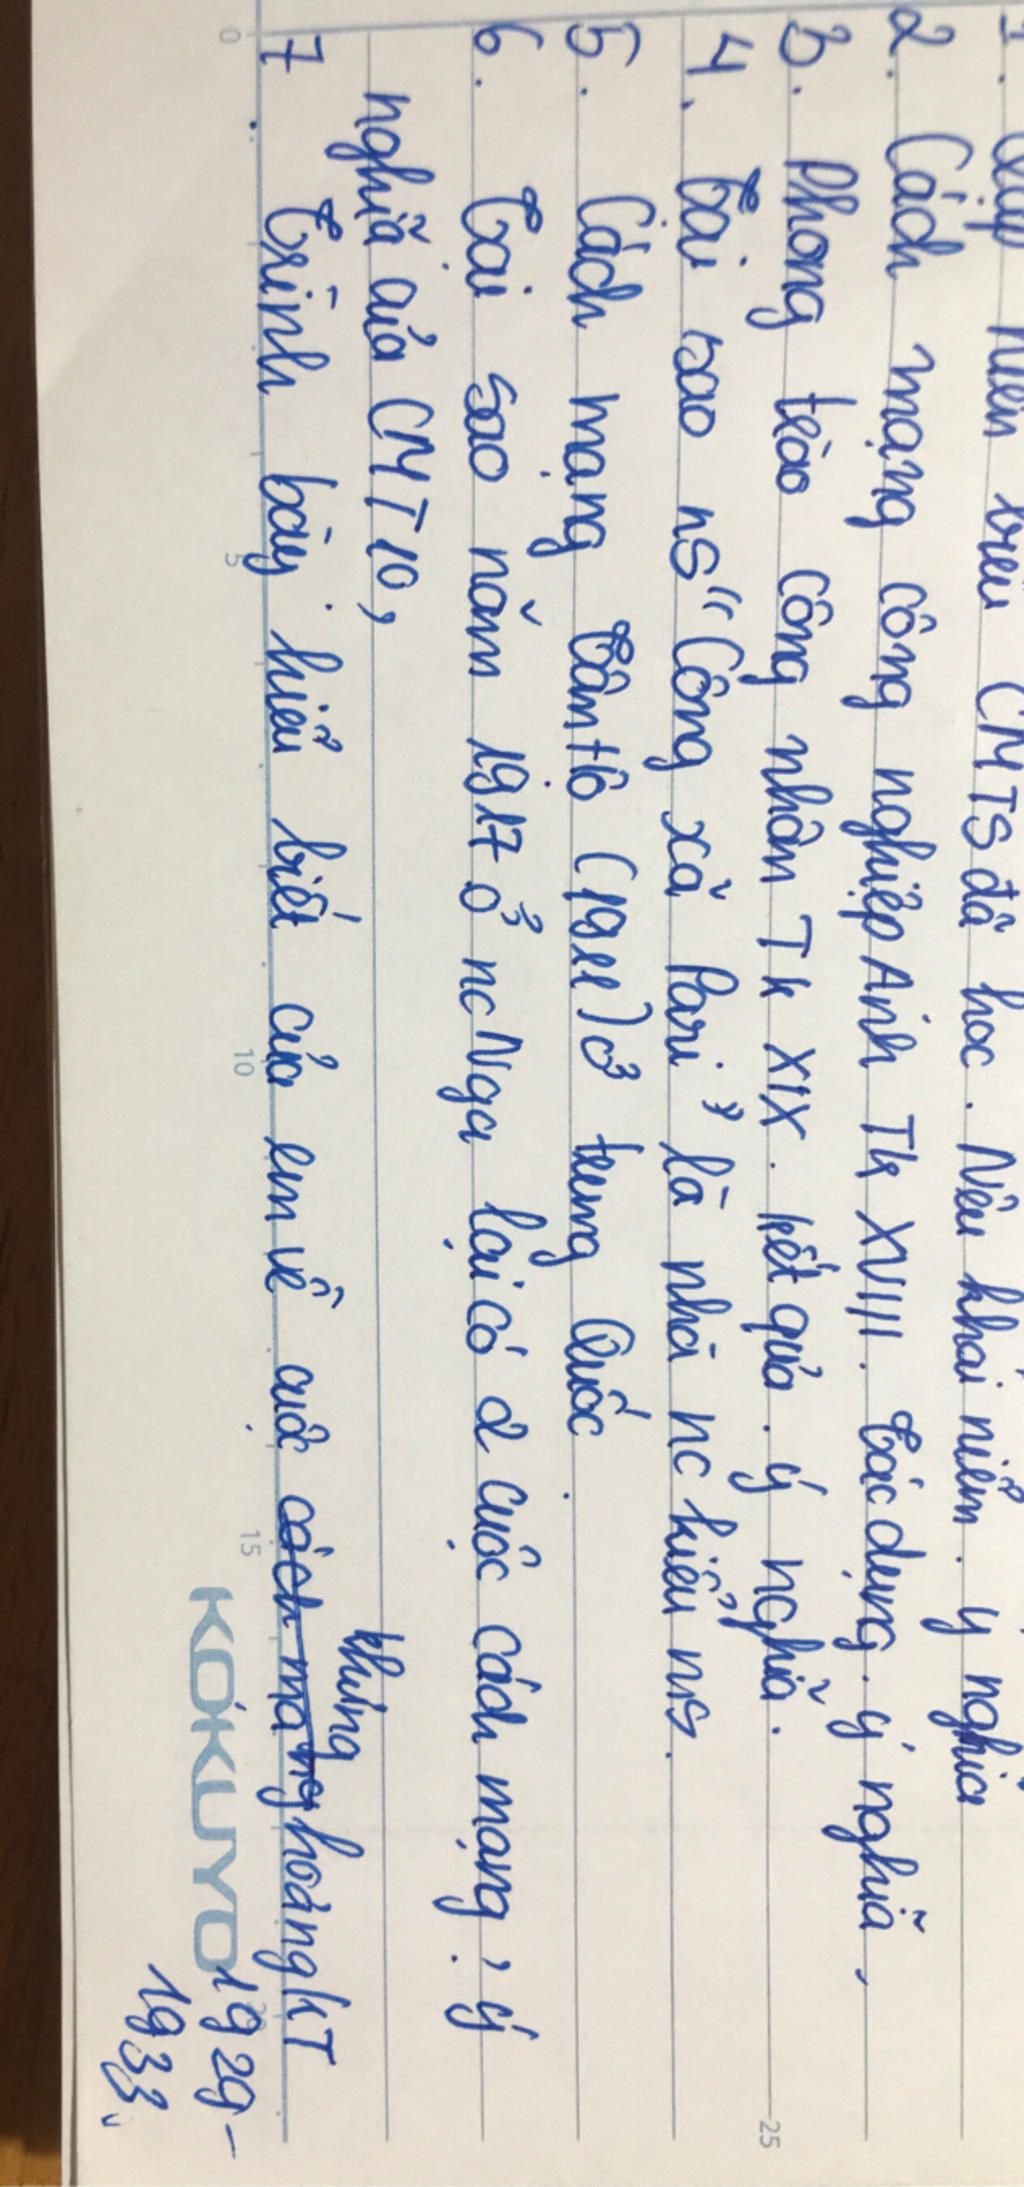 1. Lập niên biểu CMTS đã học. Nêu khái niệm. ý nghĩa
2. Cách mạng công nghiệp Anh TK XVIII. Tác dụng. ý nghĩa.
3. Phong trào công nhân TK XIX. kết quả. ý nghĩa.
4. Tại sao ns "Công xã Pari" là nhà nc kiểu ms.
5. Cách mạng Tân Hợi (1911) ở trung Quốc.
6. Tại sao năm 1917 ở nc Nga lại có 2 cuộc cách mạng? ý
nghĩa của CMT10,
7. Trình bày hiểu biết của em về cuộc cách mạng khủng hoảng KT
1929-
1933
KOKUYO
0
5
10
15
25